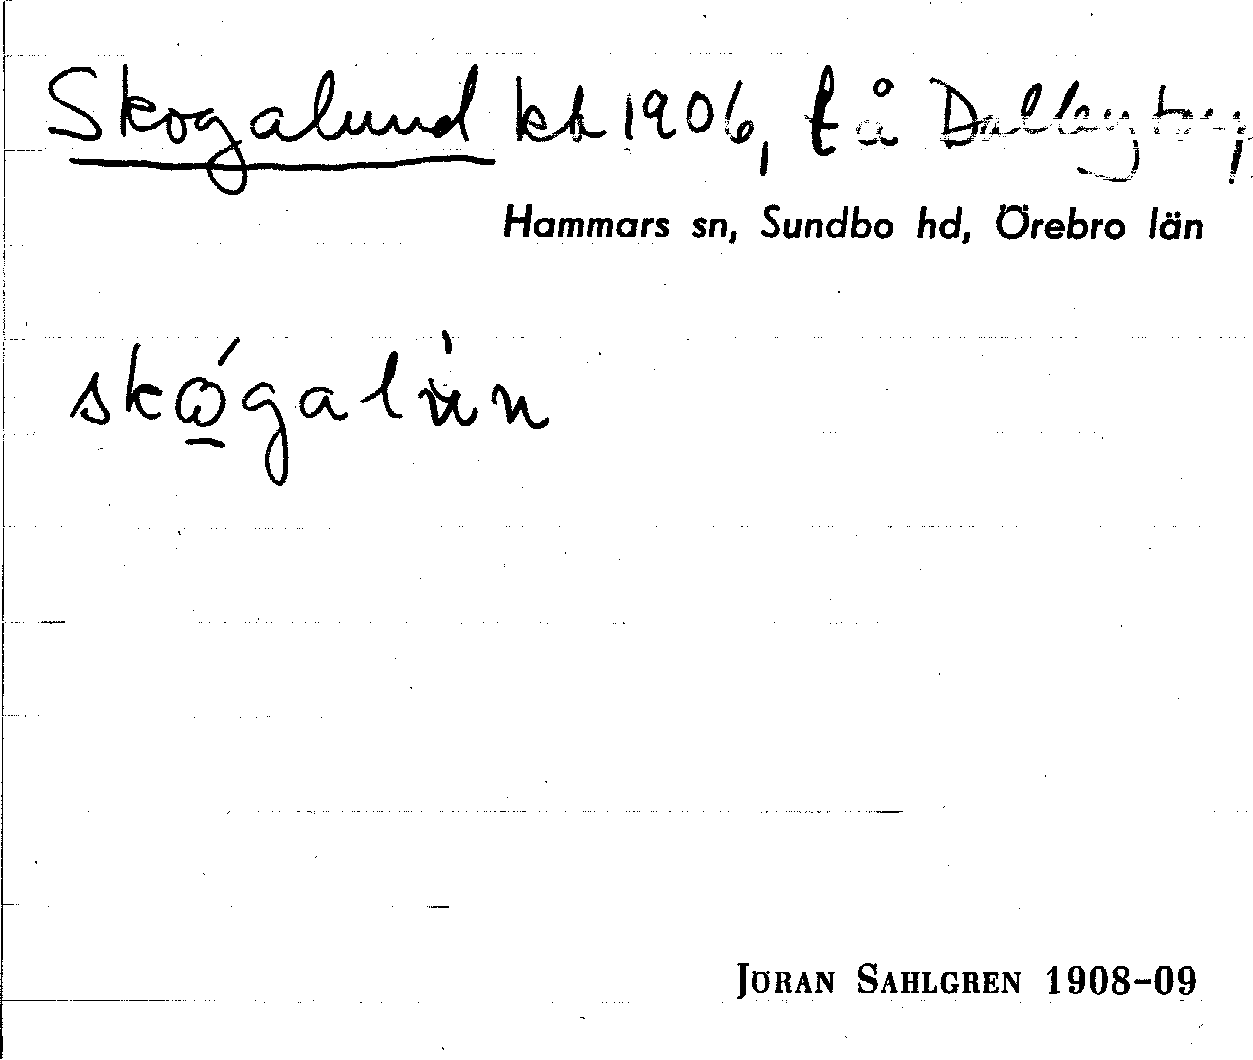 Skogalund kb 1906, t å
Hammars sn, Sundbo hd, Örebro län
skógalùn
JÖRAN SAHLGREN 1908-09